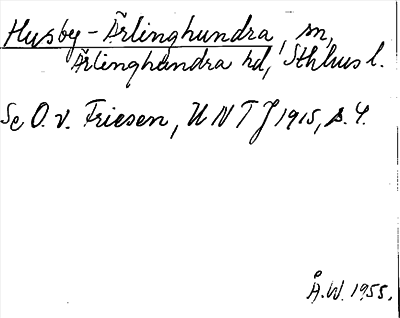 Husby-Ärlinghundra, sn,
Ärlinghundra hd, Sthlms l.
Se O. v. Friesen, UNTJ 1915, s. 4.
Å.W. 1955.